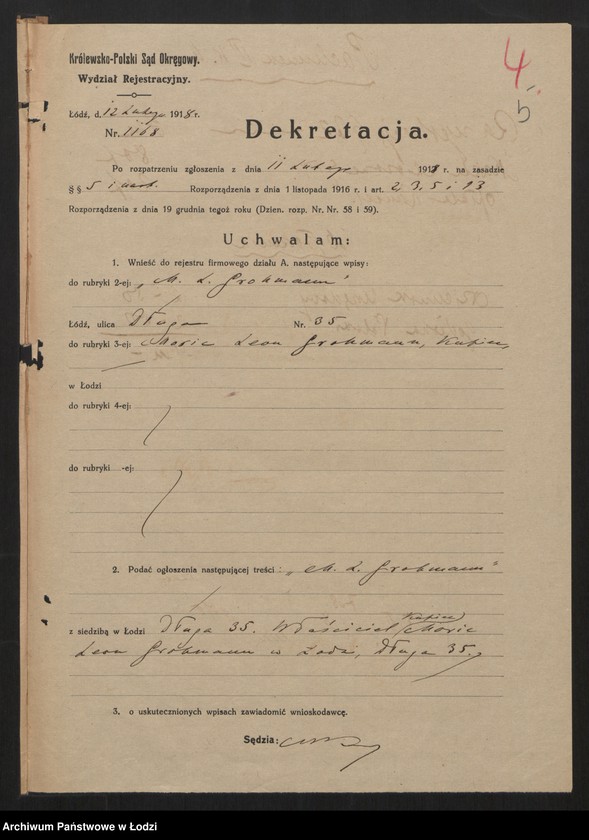 4.
5
Królewsko-Polski Sąd Okręgowy.
Wydział Rejestracyjny.
Łódź, d. 12 Lutego 1918 r.
Nr. 1168
Dekretacja.
Po rozpatrzeniu zgłoszenia z dnia 11 Lutego 1918 r. na zasadzie
§ § 5 i nast. Rozporządzenia z dnia 1 listopada 1916 r. i art. 2, 3, 5 i 13
Rozporządzenia z dnia 19 grudnia tegoż roku (Dzien. rozp. Nr. Nr. 58 i 59).
Uchwalam:
1. Wnieść do rejestru firmowego działu A. następujące wpisy:
do rubryki 2-ej: „M. L. Grohmann”
Łódź, ulica Długa Nr. 35
do rubryki 3-ej: Moric Leon Grohmann, Kupiec,
w Łodzi
do rubryki 4-ej:
do rubryki -ej:
2. Podać ogłoszenia następującej treści: „M. L. Grohmann”
z siedzibą w Łodzi Długa 35. Właściciel Kupiec Moric
Leon Grohmann w Łodzi, Długa 35.
3. o uskutecznionych wpisach zawiadomić wnioskodawcę.
Sędzia:
Archiwum Państwowe w Łodzi